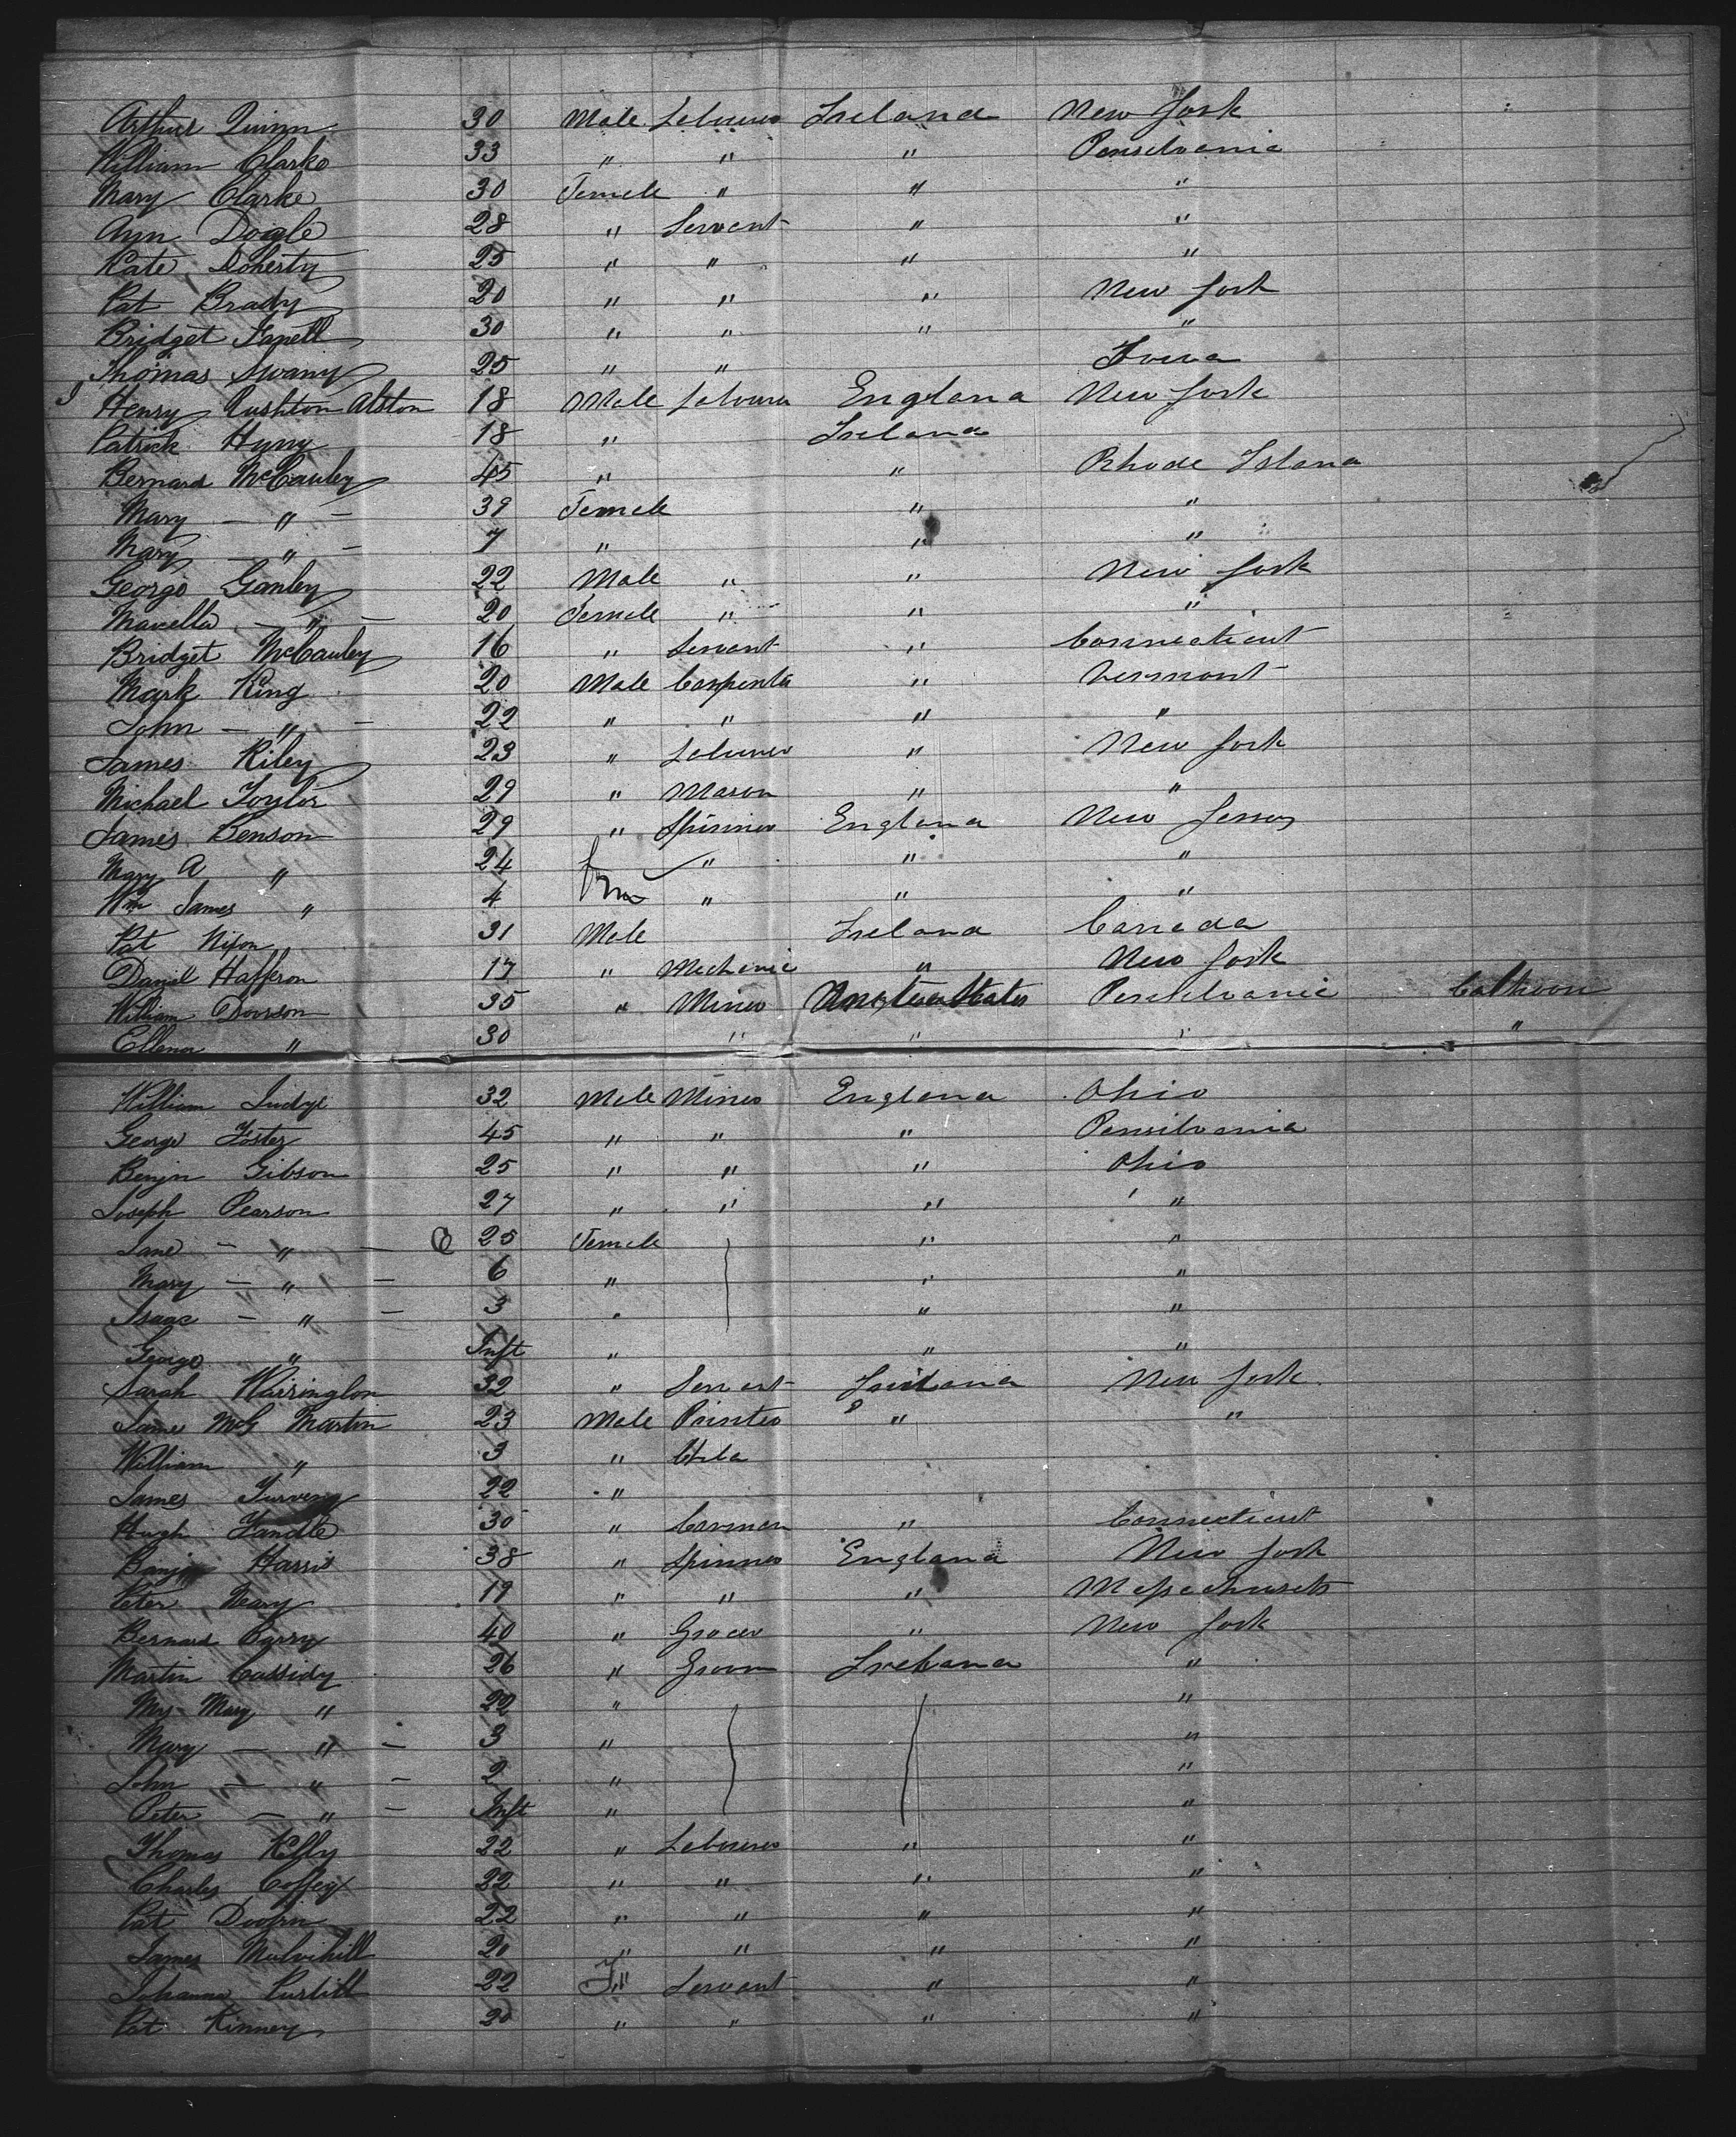 Arthur Quinn 30 Male Labourer Ireland New York
William Clarke 33 " " " Pensilvania
Mary Clarke 30 Female " " "
Ann Dogle 28 " Servant " "
Kate Doherty 25 " " " "
Pat Brady 20 " " " New York
Bridget Farrell 30 " " " "
Thomas Swany 25 " " Iowa
Henry Rushton Alston 18 Male Labourer England New York
Patrick Hyny 18 " Ireland
Bernard McCauley 45 " " Rhode Island
Mary — " — 39 Female " "
Mary — " — 7 " " "
George Ganley 22 Male " " New York
Marcella — " — 20 Female " " "
Bridget McCauley 16 " Servant " Connecticut
Mark King 20 Male Carpenter " Vermont
John — " — 22 " " " "
James Riley 23 " Labourer " New York
Michael Taylor 29 " Mason " "
James Benson 29 " Spinner England New Jersey
Mary A " 24 " " "
Wm James " 4 " " "
Pat Nixon 31 Male Ireland Canada
Daniel Hafferon 17 " Mechanic " New York
William Dawson 35 " Miner United States Pensilvania Calhoon
Ellenor " 30 " " " "
William Judge 32 Male Miner England Ohio
George Foster 45 " " " Pensilvania
Benjn Gibson 25 " " " Ohio
Joseph Pearson 27 " " " "
Jane — " — 25 Female " "
Mary — " — 6 " " "
Isaac — " — 3 " " "
George " Inft " " "
Sarah Warrington 32 " Servant Ireland New York
Jame McG Martin 23 Male Printer " "
William " 3 " Child
James 22 "
Hugh Landle 30 " Carman " Connecticut
Benjn Harris 38 " Spinner England New York
Peter Neary 19 " " " Massachusets
Bernard Carry 40 " Grocer " New York
Martin Cassidy 26 " Groom Ireland "
Mrs Mary " 22 " "
Mary — " — 3 " "
John — " — 2 " "
Peter — " — Inft " "
Thomas Kelly 22 " Labourer " "
Charles Coffey 22 " " " "
Pat 22 " " " "
James Mulvihill 20 " " " "
Johanna Purtill 22 F " Servant " "
Pat Kinney 20 " " " "